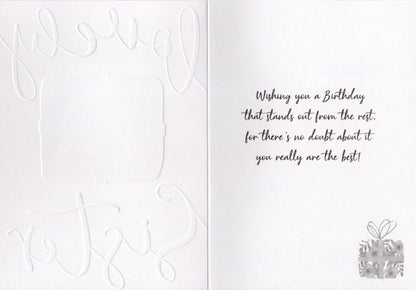 lovely
Sister
Wishing you a Birthday
that stands out from the rest,
for there's no doubt about it
you really are the best!